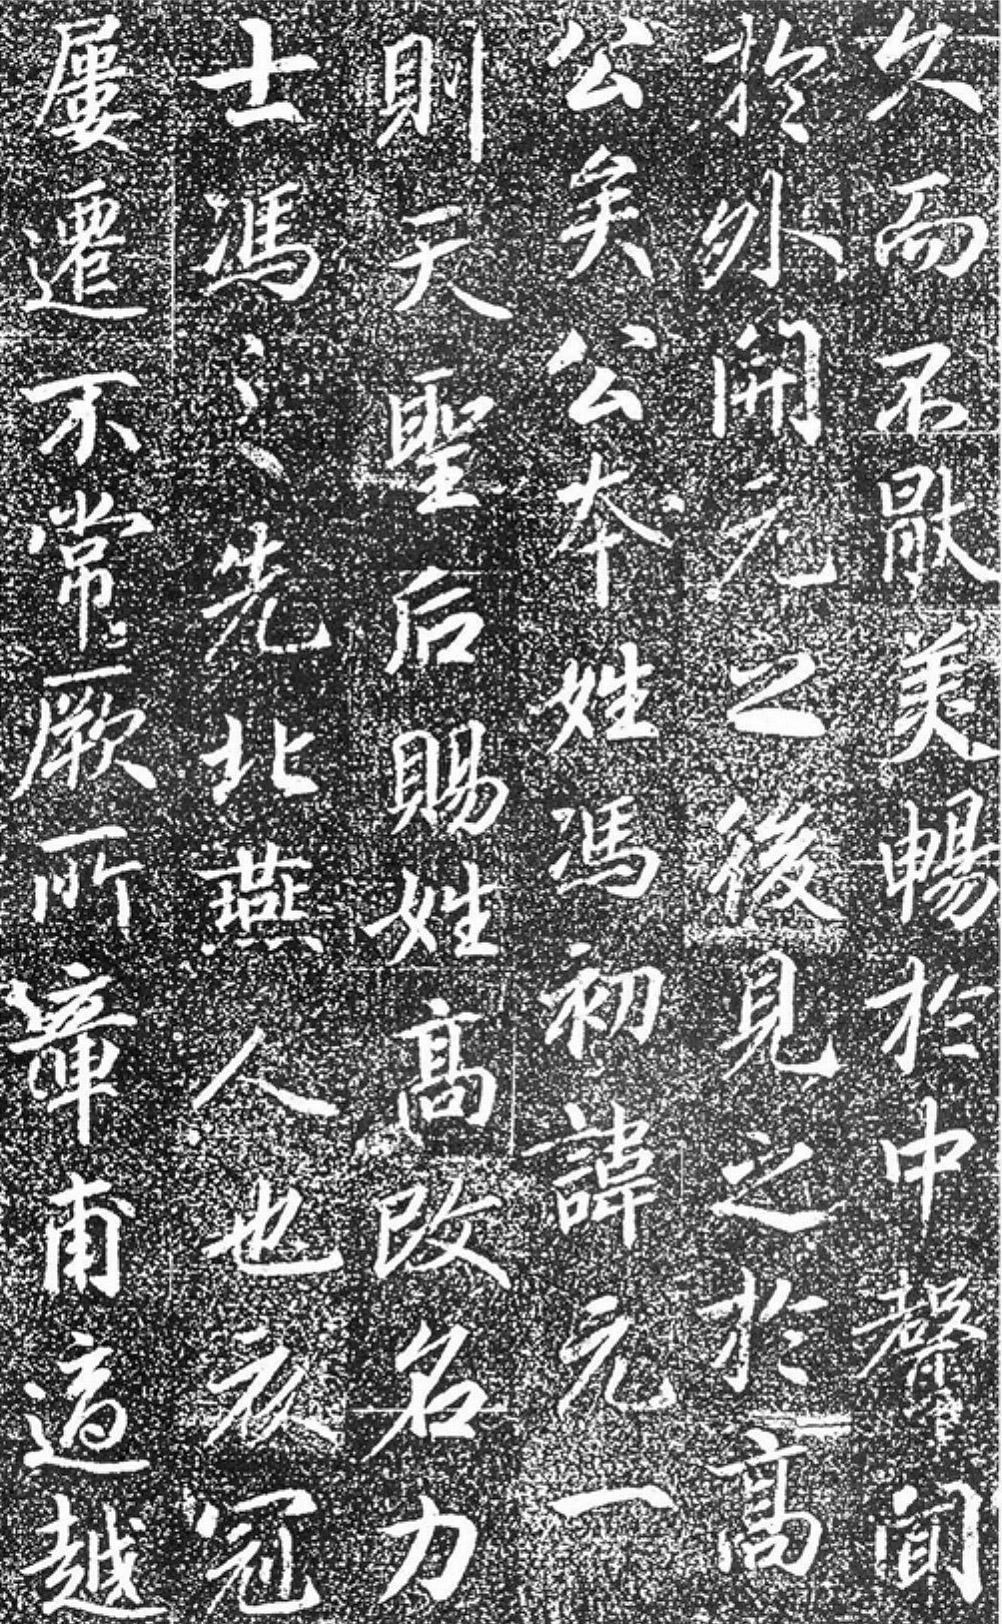 久而不散美暢於中聲聞
於外開元之後見之於高
公矣公本姓馮初諱元一
則天聖后賜姓高改名力
士馮之先北燕人也衣冠
屢遷不常厥所章甫適越